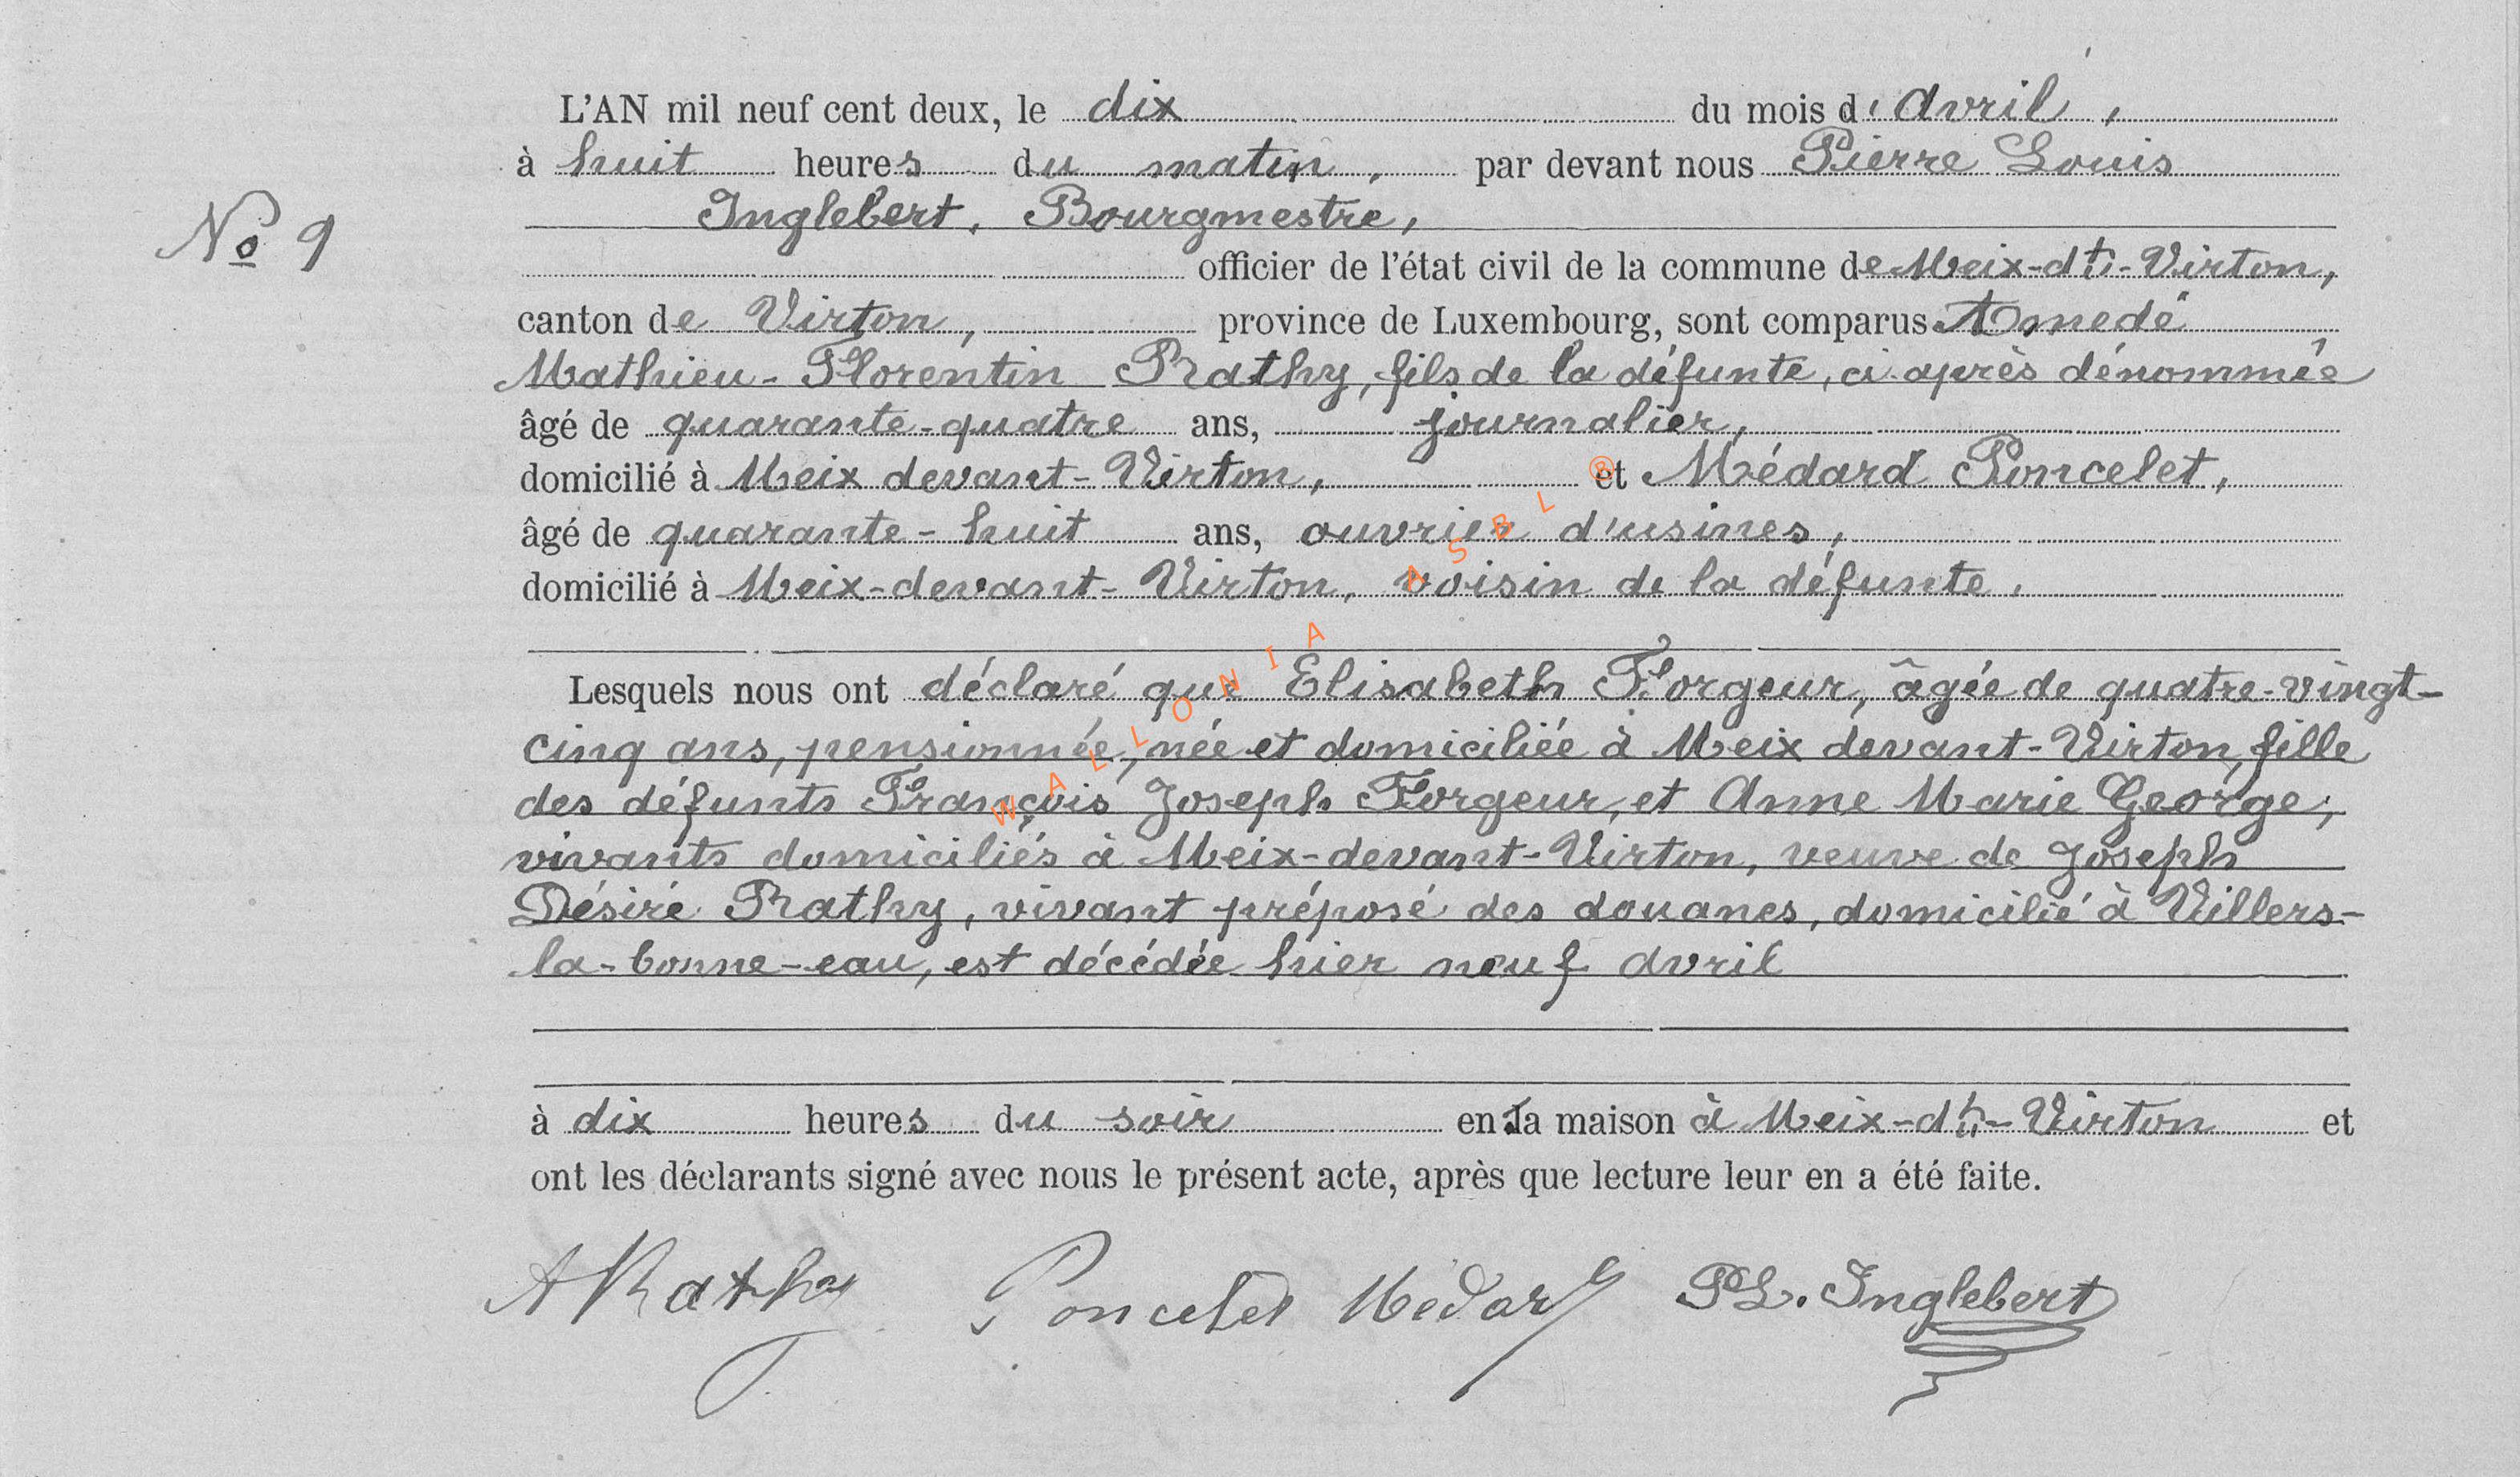 L'AN mil neuf cent deux, le dix du mois d'Avril,
à huit heures du matin, par devant nous Pierre Louis
Inglebert, Bourgmestre,
No 9
officier de l'état civil de la commune de Meix-dt-Virton,
canton de Virton, province de Luxembourg, sont comparus Amedé
Mathieu-Florentin Rathy, fils de la défunte, ci après dénommée
âgé de quarante-quatre ans, journalier,
domicilié à Meix devant-Virton, et Médard Poncelet,
âgé de quarante-huit ans, ouvrier d'usines,
domicilié à Meix-devant-Virton, voisin de la défunte.
Lesquels nous ont déclaré que Elisabeth Forgeur, âgée de quatre-vingt-
cinq ans, pensionnée, née et domiciliée à Meix devant-Virton, fille
des défunts François Joseph Forgeur, et Anne Marie George,
vivants domiciliés à Meix-devant-Virton, veuve de Joseph
Désiré Rathy, vivant préposé des douanes, domicilié à Villers-
la-bonne-eau, est décédée hier neuf avril
à dix heures du soir en sa maison à Meix-dt-Virton et
ont les déclarants signé avec nous le présent acte, après que lecture leur en a été faite.
A Rathy Poncelet Médard PL. Inglebert
WALLONIA ASBL ®